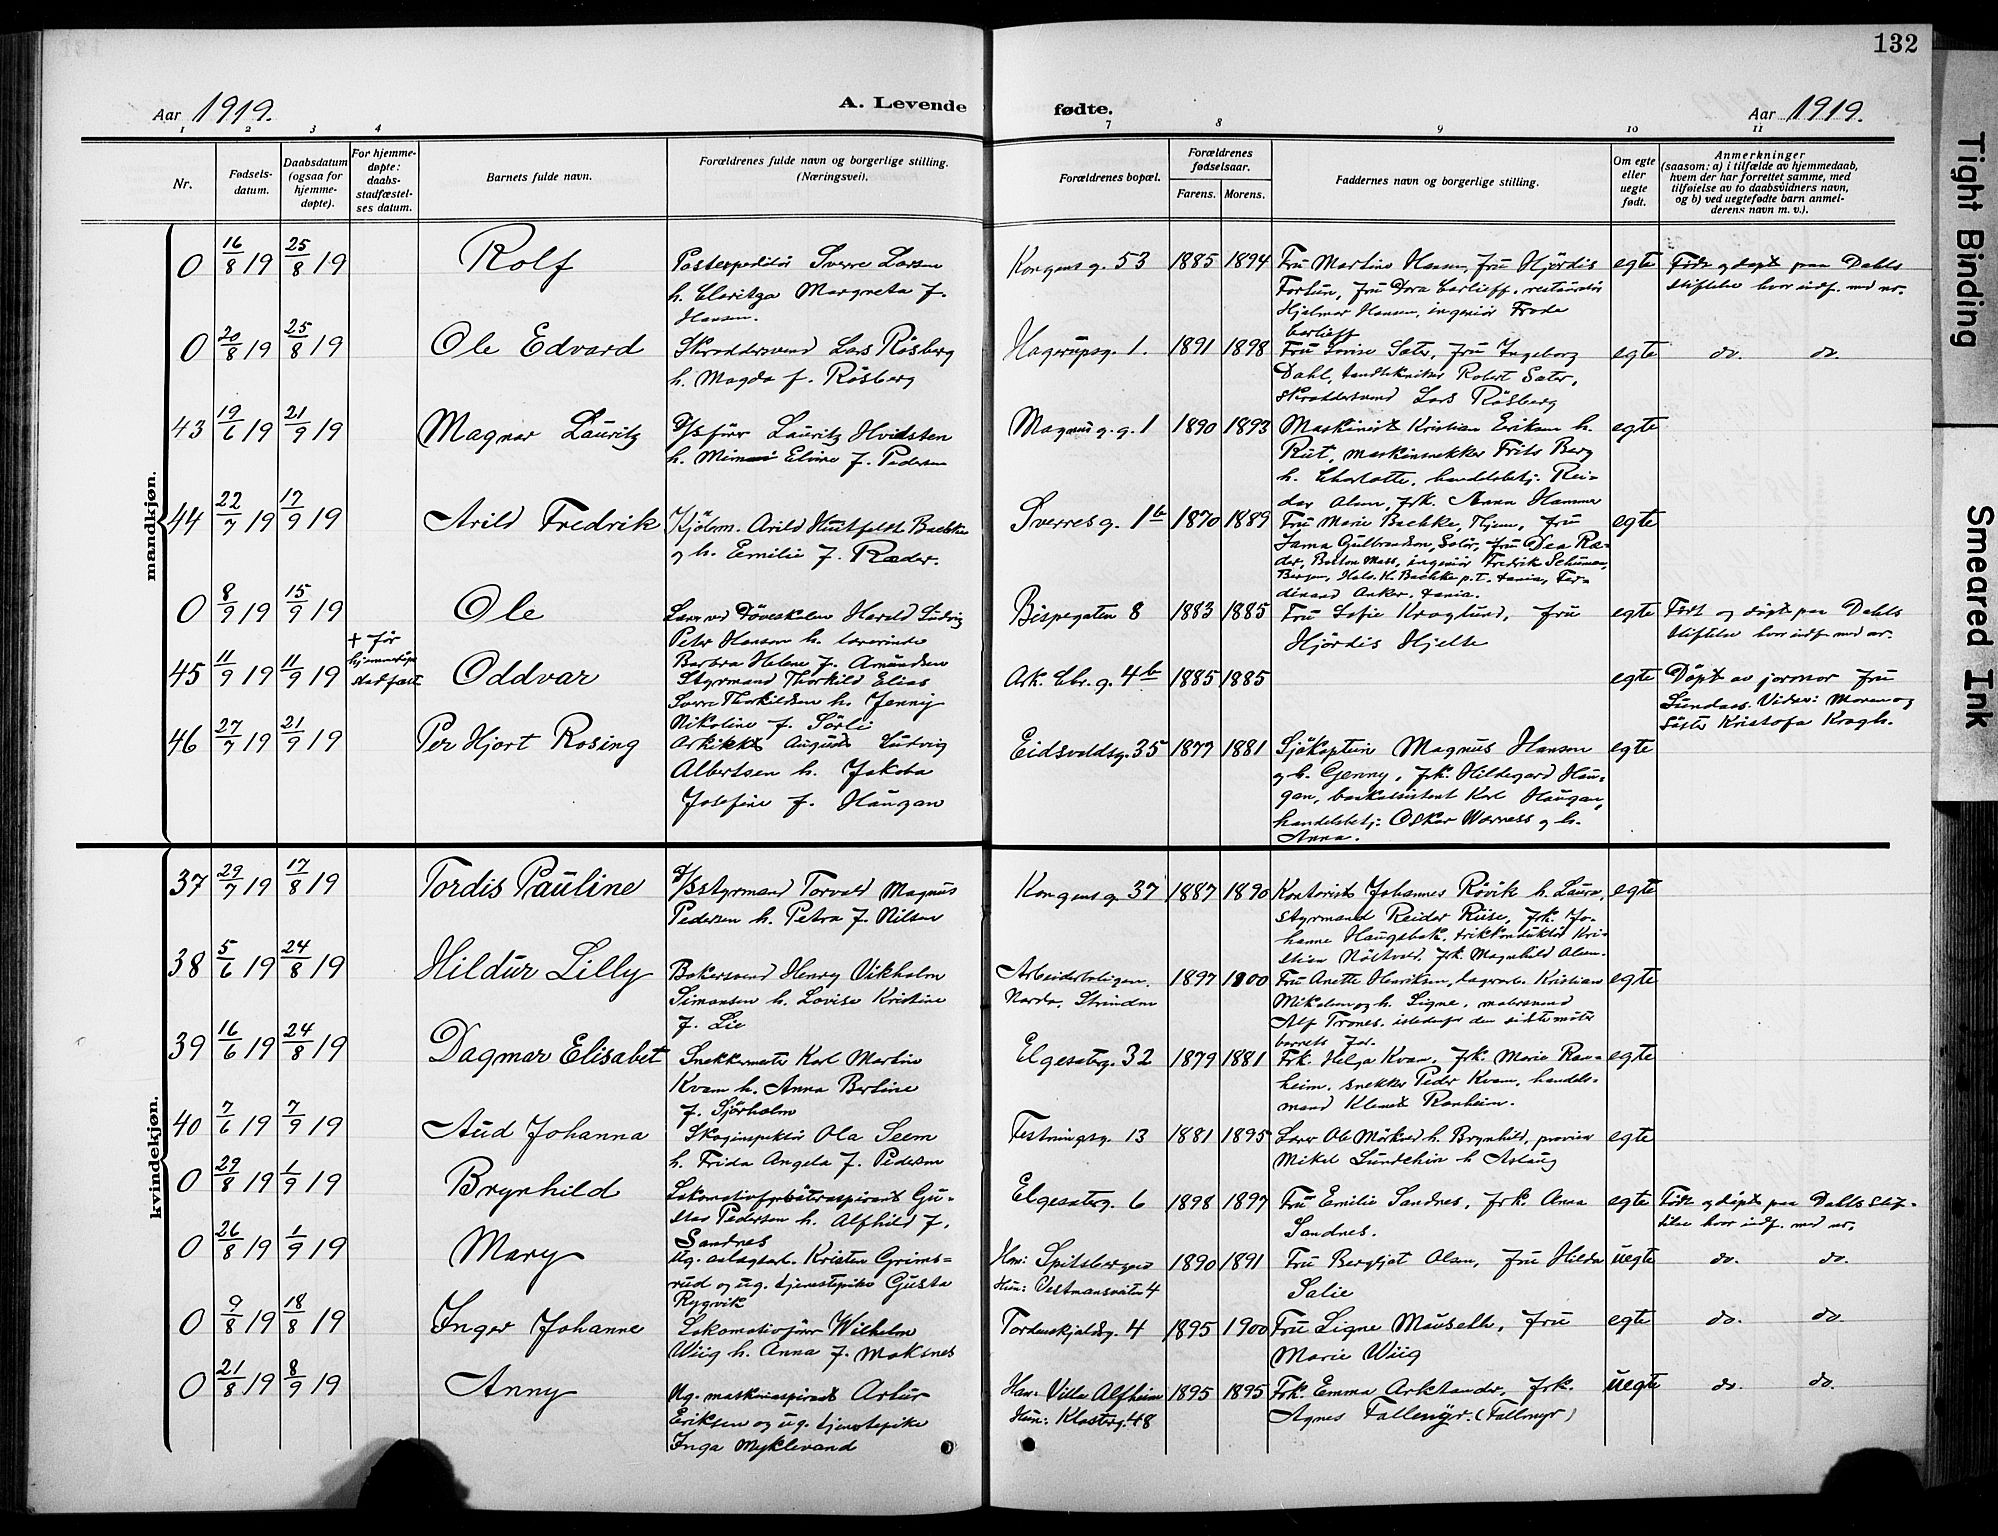 132
Aar 1919.
A. Levende
fødte.
Aar 1919.
1 2 3 4 7 8 9 10 11
Nr.
Fødsels-
datum.
Daabsdatum
(ogsaa for
hjemme-
døpte).
For hjemme-
døpte:
daabs-
stadfæstel-
ses datum.
Barnets fulde navn.
Forældrenes fulde navn og borgerlige stilling.
(Næringsvei).
Forældrenes bopæl.
Forældrenes
fødselsaar.
Farens. Morens.
Faddernes navn og borgerlige stilling.
Om egte
eller
uegte
født.
Anmerkninger
(saasom: a) i tilfælde av hjemmedaab,
hvem der har forrettet samme, med
tilføielse av to daabsvidners navn,
og b) ved uegtefødte barn anmel-
derens navn m. v.).
mandkjøn.
0 16/8 19 25/8 19 Rolf
Postexpeditør Sverre Larsen
h. Claritza Margreta f.
Hansen.
Kongens g. 53 1885 1894
Fru Martine Hansen, fru Hjördis
Fortun, fru Dora Carlieff, restauratør
Hjalmar Hansen, ingeniør Frode
Carlieff
egte
Født og døpt paa Dahls
stiftelse hvor indf. med nr.
0 20/8 19 25/8 19 Ole Edvard
Skræddersvend Lars Rösberg
h. Magda f. Rösberg
Hagerupsg. 1. 1891 1898
Fru Lovise Sæter, fru Ingeborg
Dahl, tandtekniker Robert Sæter,
skræddersvend Lars Rösberg
egte do. do.
43 19/6 19 21/9 19 Magnar Lauritz
D/Sfürer Lauritz Hvidsten
h. Elvire f. Pedersen
Magnus g. g. 1 1890 1893
Maskinist Kristian Eriksen h.
Rut, maskinsnekker Frits Berg
h. Charlotte, handelsbetj. Rei-
dar Alsen, frk. Anna Hammer
egte
44 22/7 19 17/9 19 Arild Fredrik
Kjøbm. Arild Huitfeldt Bachke
og h. Emilie f. Ræder.
Sverresg. 1b 1870 1889
Fru Marie Bachke, Hjem, fru
Jama Gulbrandsen, Solør, fru Dea Ræ-
der, Boston Mass, ingeniør Fredrik Schiman,
Bergen, Hals. H. Bachke p.T. tania, Fer-
dinand Anker, tania.
egte
0 8/9 19 15/9 19 Ole
Lærer ved Døveskolen Harald Ludvig
Peter Hansen h. lærerinde
Barbra Helene f. Amundsen
Bispegaten 8 1883 1885
Fru Sofie Kroglund, fru
Hjördis Hjelte
egte
Født og døpt paa Dahls
stiftelse hvor indf. med nr.
45 11/9 19 11/9 19
+ før
hjemmedåp
stadfæst
Oddvar
Styrmand Thorkild Elias
Sverre Thorkildsen h. Jenny
Nikoline f. Sörli
Ark. Chr. g. 4b 1885 1885
egte
Døpt av jormor Fru
Sundaas. Vidner: Moren og
Söster Kristofa Kragh.
46 27/7 19 21/9 19 Per Hjort Rosing
Arkitekt August Ludvig
Albertsen h. Jakoba
Josefine f. Haugan
Eidsvoldsg. 35 1877 1881
Sjökaptein Magnus Hansen
og h. Genny, frk. Hildegard Hau-
gan, bankassistent Karl Haugan,
handelsbetj: Oskar Wærness og h.
Anna.
egte
kvindekjøn.
37 29/7 19 17/8 19 Tordis Pauline
D/Sstyrmand Torvald Magnus
Pedersen h. Petra f. Nilsen
Kongens g. 37 1887 1890
Kontorist Johannes Rövik h. Laura,
styrmand Reidar Riise, frk. Jo-
hanne Haugsbak, trikkonduktør Kri-
stian Nöstvold, frk. Magnhild Alsen.
egte
38 5/6 19 24/8 19 Hildur Lilly
Bakersvend Henry Vikholm
Simonsen h. Lovise Kristine
f. Lie
Arbeiderboligen,
Narda, Strinden
1897 1900
Fru Anette Henriksen, lagerarb. Kristian
Mikalsen og h. Signe, malersvend
Alf Trones. istedenfor den sidste möter
barnets far.
egte
39 16/6 19 24/8 19 Dagmar Elisabet
Snekkermester Karl Martin
Kvam h. Anna Berline
f. Sjørholm
Elgesæterg. 32 1879 1881
Frk. Helga Kvam, frk. Marie Ran-
heim, snekker Peder Kvam, handels-
mand Klemet Ranheim.
egte
40 7/6 19 7/9 19 Aud Johanna
Skoginspektör Ola Seem
h. Frida Angela f. Pedersen
Festningsg. 13 1881 1895
Lærer Ole Mörkved h. Brynhild, provisor
Mikal Sundehin h Aslaug
egte
0 29/8 19 1/9 19 Brynhild
Lokomotivfyrbøteraspirant Gu-
stav Pedersen h. Alfhild f.
Sandnes
Elgesæterg. 6 1898 1897
Fru Emilie Sandnes, frk. Anna
Sandnes.
egte
Født og døpt paa Dahls Stif-
telse hvor indf. med nr.
0 26/8 19 1/9 19 Mary
Ug. anlægsarb. Kristen Grims-
rud og ug. tjenestepike Gusta
Rygvik
Han: Spitsbergen
Hun: Vestmansvæita 4
1890 1891
Fru Bergljot Olsen, fru Hilda
Salie
uegte do. do.
0 9/8 19 18/8 19 Inger Johanne
Lokomotivfürer Wilhelm
Wiig h. Anna f. Moksnes
Tordenskjoldsg. 4 1895 1900
Fru Signe Mauseth, fru
Marie Wiig
egte do. do
0 21/8 19 8/9 19 Anny
Ug. maskinaspirant Artur
Eriksen og ug. tjenestepike
Inga Myklevand
Han: Villa Alfheim
Hun: Klosterg. 48
1895 1895
Frk. Emma Arktander, frk.
Agnes Fallemyr. (Fallmyr)
uegte do. do.
Tight Binding
Smeared Ink